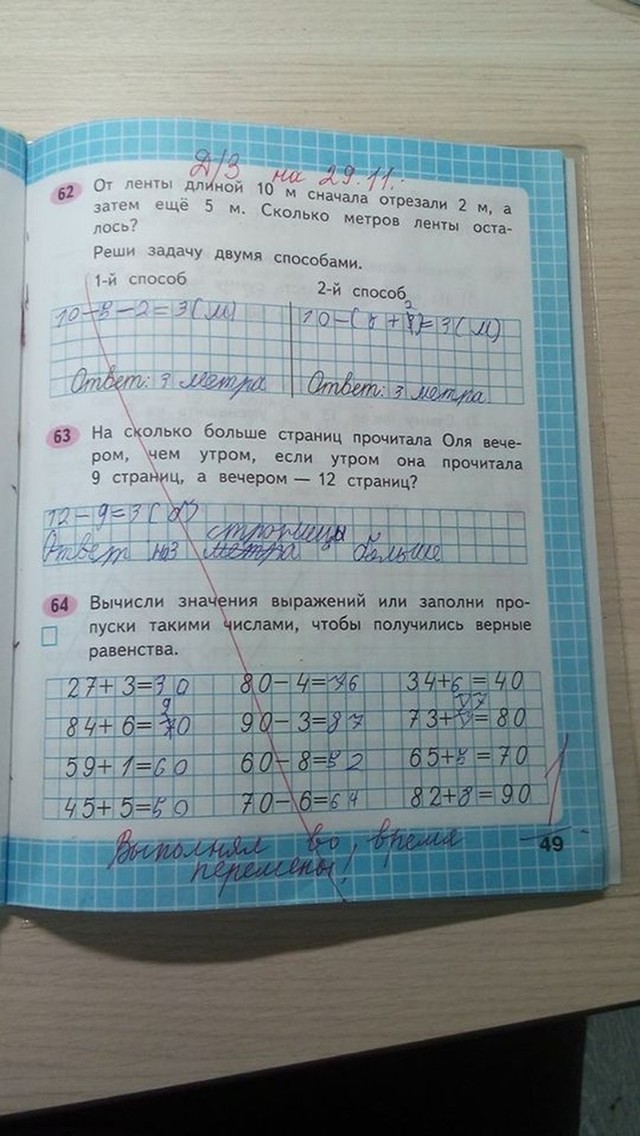 Д/З на 29.11.
62 От ленты длиной 10 м сначала отрезали 2 м, а
затем ещё 5 м. Сколько метров ленты оста-
лось?
Реши задачу двумя способами.
1-й способ 2-й способ
10-5-2=3(м) 10-( + )=3(м)
Ответ: 3 метра Ответ: 3 метра
63 На сколько больше страниц прочитала Оля вече-
ром, чем утром, если утром она прочитала
9 страниц, а вечером — 12 страниц?
12-9=3( )
страницы
Ответ на3 метра больше
64 Вычисли значения выражений или заполни про-
пуски такими числами, чтобы получились верные
равенства.
27+3=30 80-4=76 34+6=40
84+6=90 90-3=87 73+7=80
59+1=60 60-8=52 65+5=70
45+5=50 70-6=64 82+8=90
Выполнял во время
перемены!
49